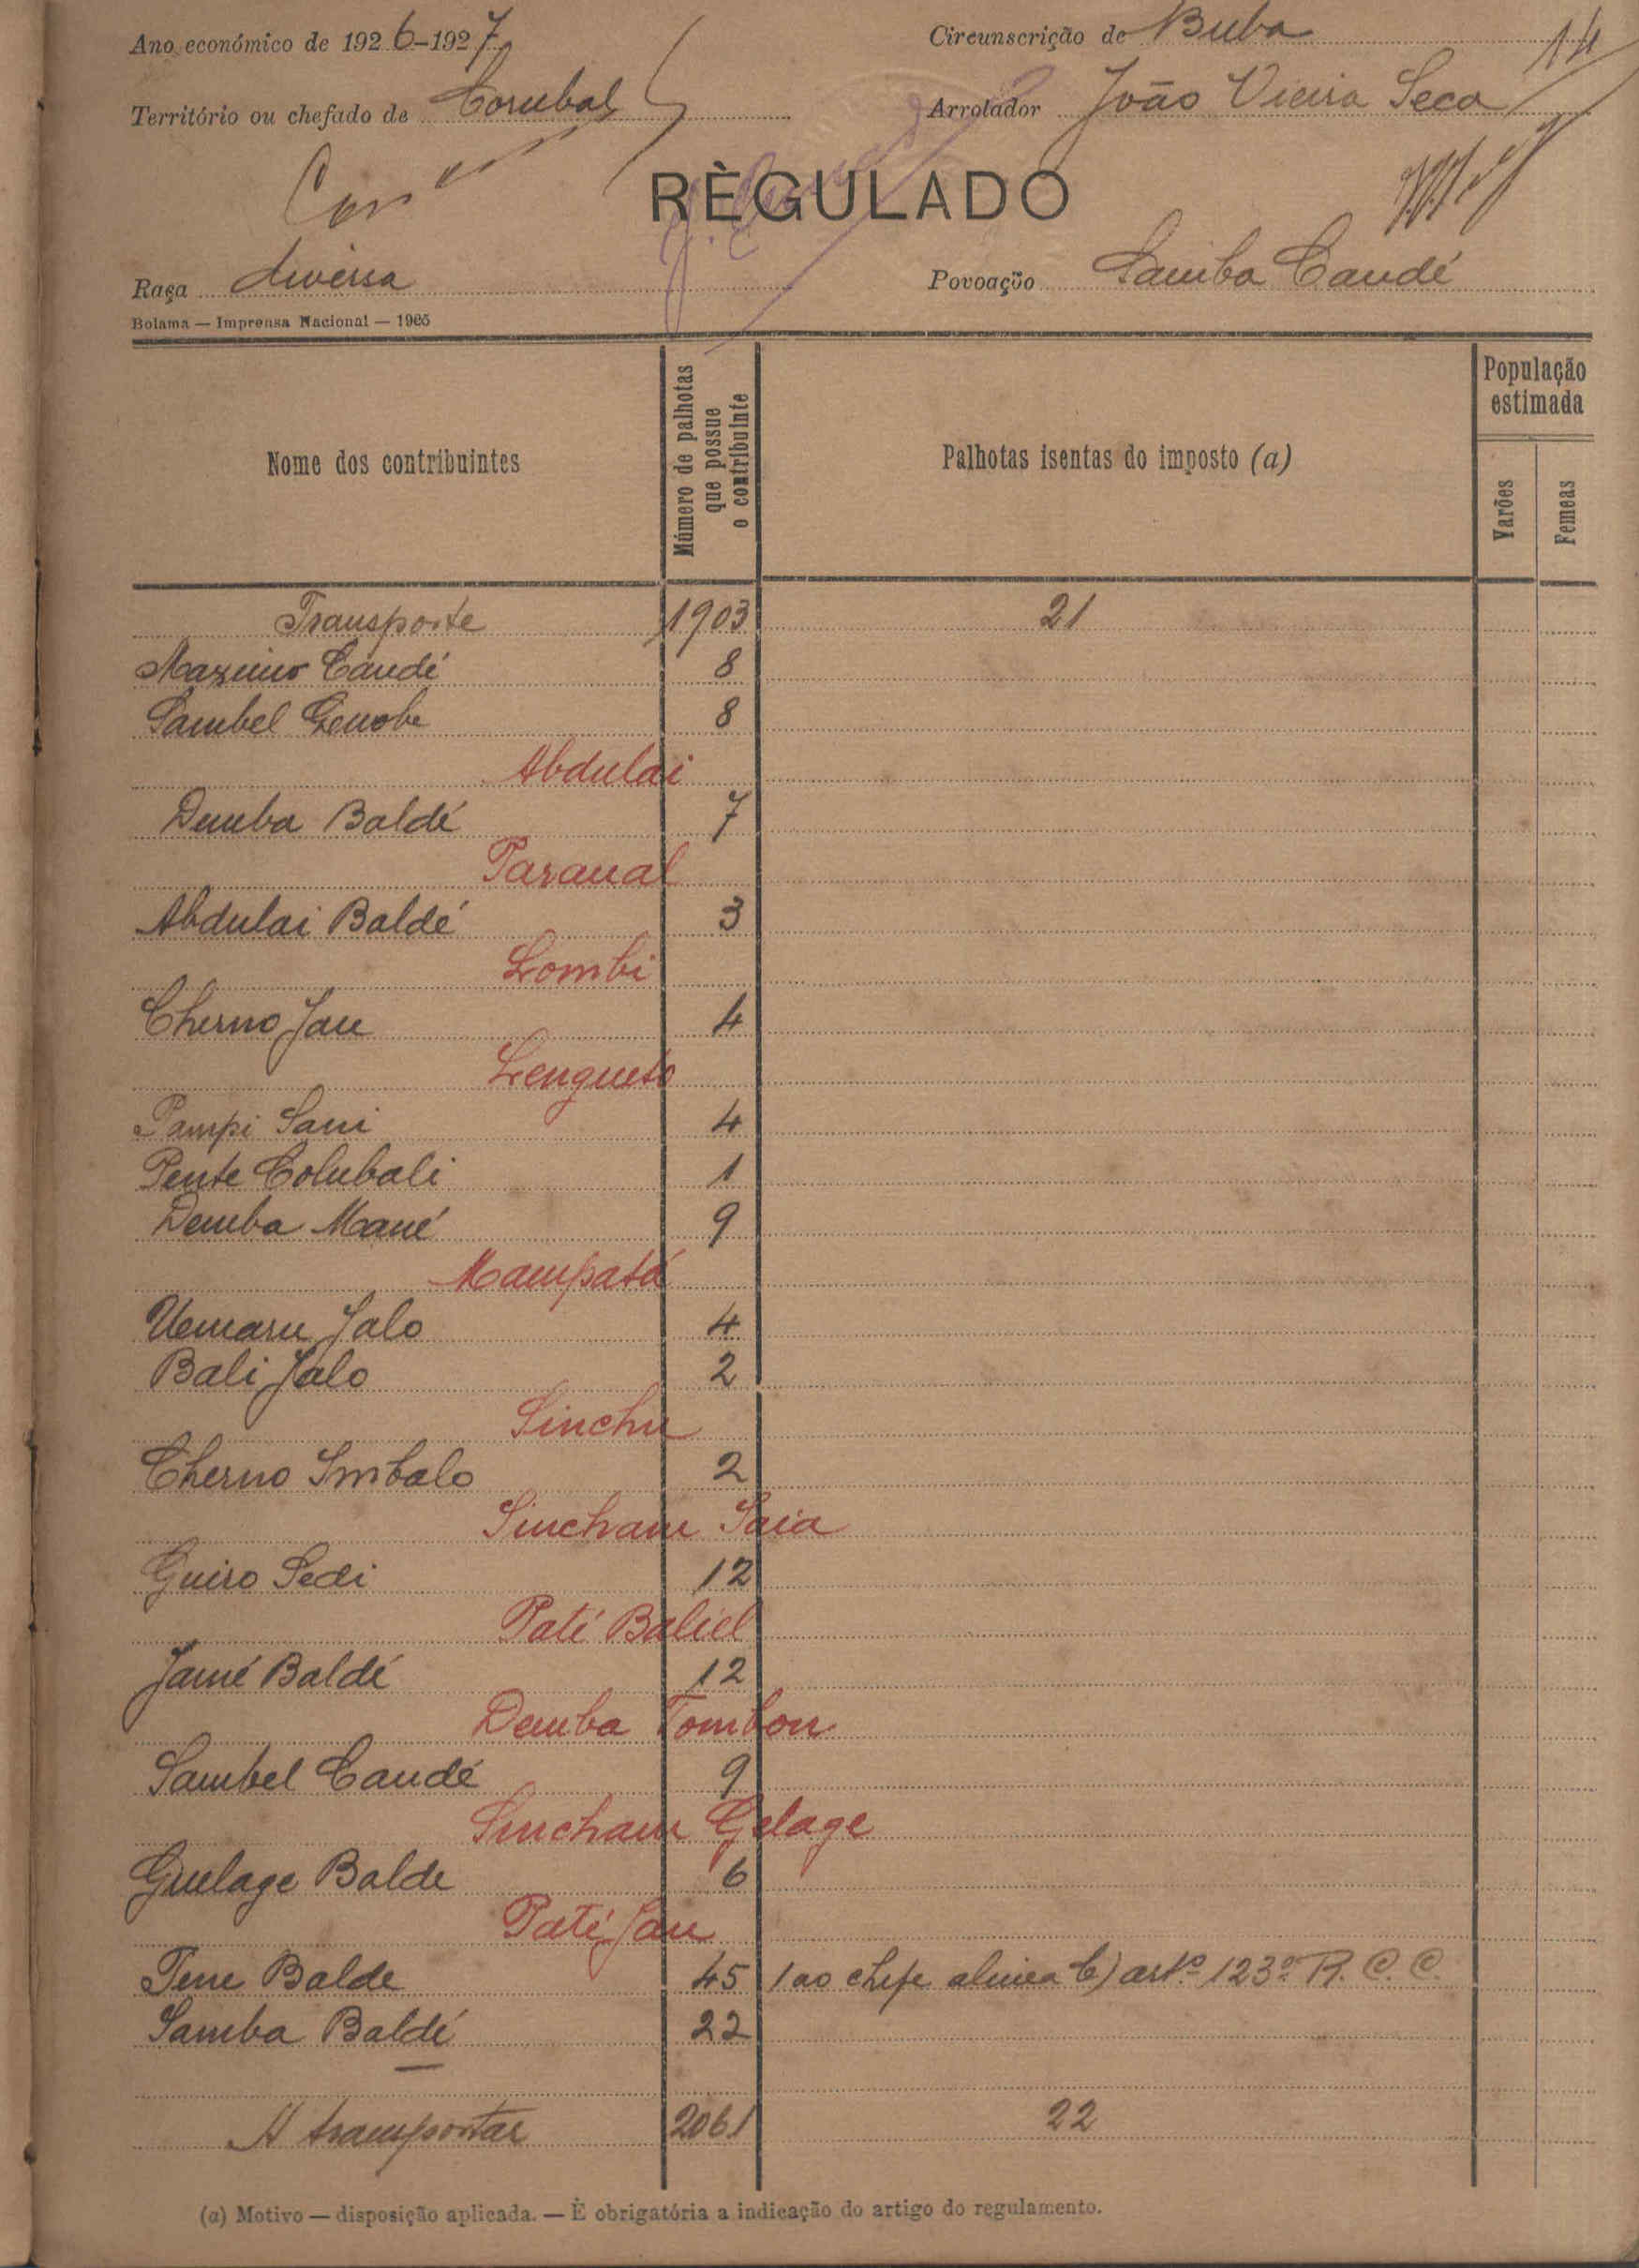 Ano económico de 1926-1927
Circunscrição de Buba
14
Território ou chefado de Corubal
Arrolador João Vieira Seca
RÈGULADO
Raça diversa
Povoação Samba Candé
Bolama — Imprensa Nacional — 1925
Nome dos contribuintes
Número de palhotas que possue o contribuinte
Palhotas isentas do imposto (a)
População estimada
Varões
Femeas
Transporte 1903 21
Candé 8
Sambel 8
Abdulai
Demba Baldé 7
Paranal
Abdulai Baldé 3
Lombi
Cherno Jau 4
Lengueto
Pampi Sani 4
Pente Colubali 1
Demba Mané 9
Mampatá
Uemaru Jalo 4
Bali Jalo 2
Sinchu
Cherno Imbalo 2
Sincham Saia
Guiro Sedi 12
Paté Baliel
Jamé Baldé 12
Demba Tombon
Sambel Candé 9
Sincham Gelage
Guelage Balde 6
Paté Jau
Tene Balde 45 1 ao chefe alinea b) artº 123º R. C. C.
Samba Baldé 22
A transportar 2061 22
(a) Motivo — disposição aplicada. — È obrigatória a indicação do artigo do regulamento.